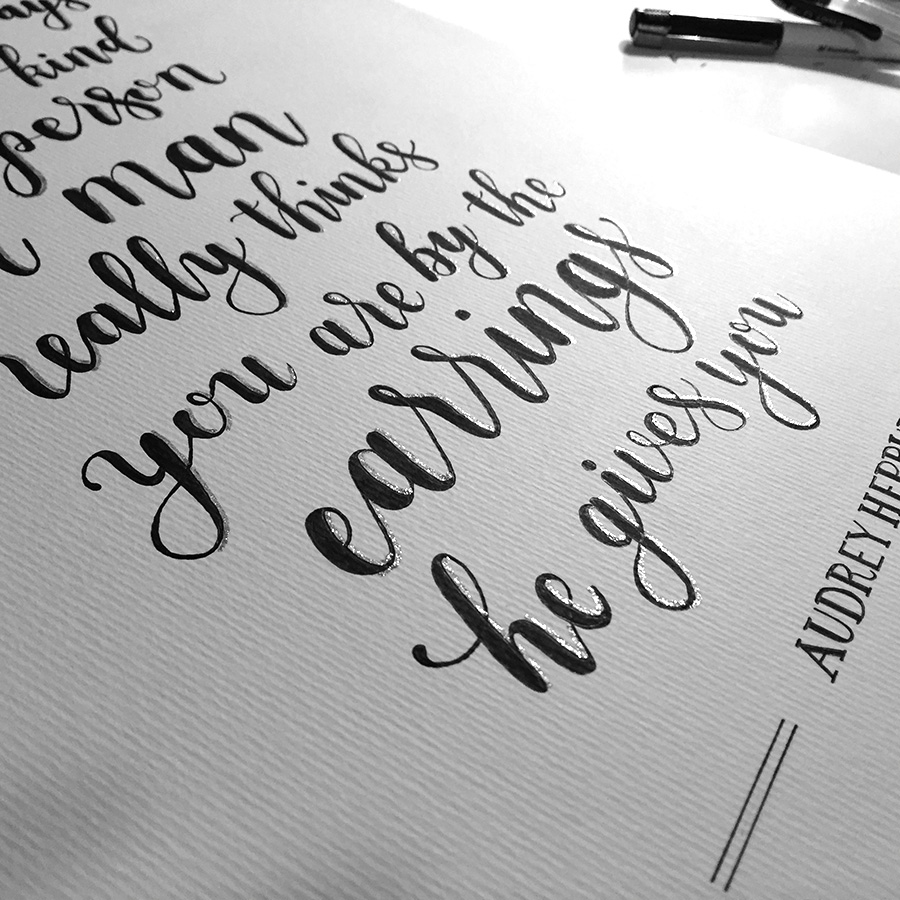 ays
kind
person
man
really thinks
you are by the
earrings
he gives you
AUDREY HEPBU